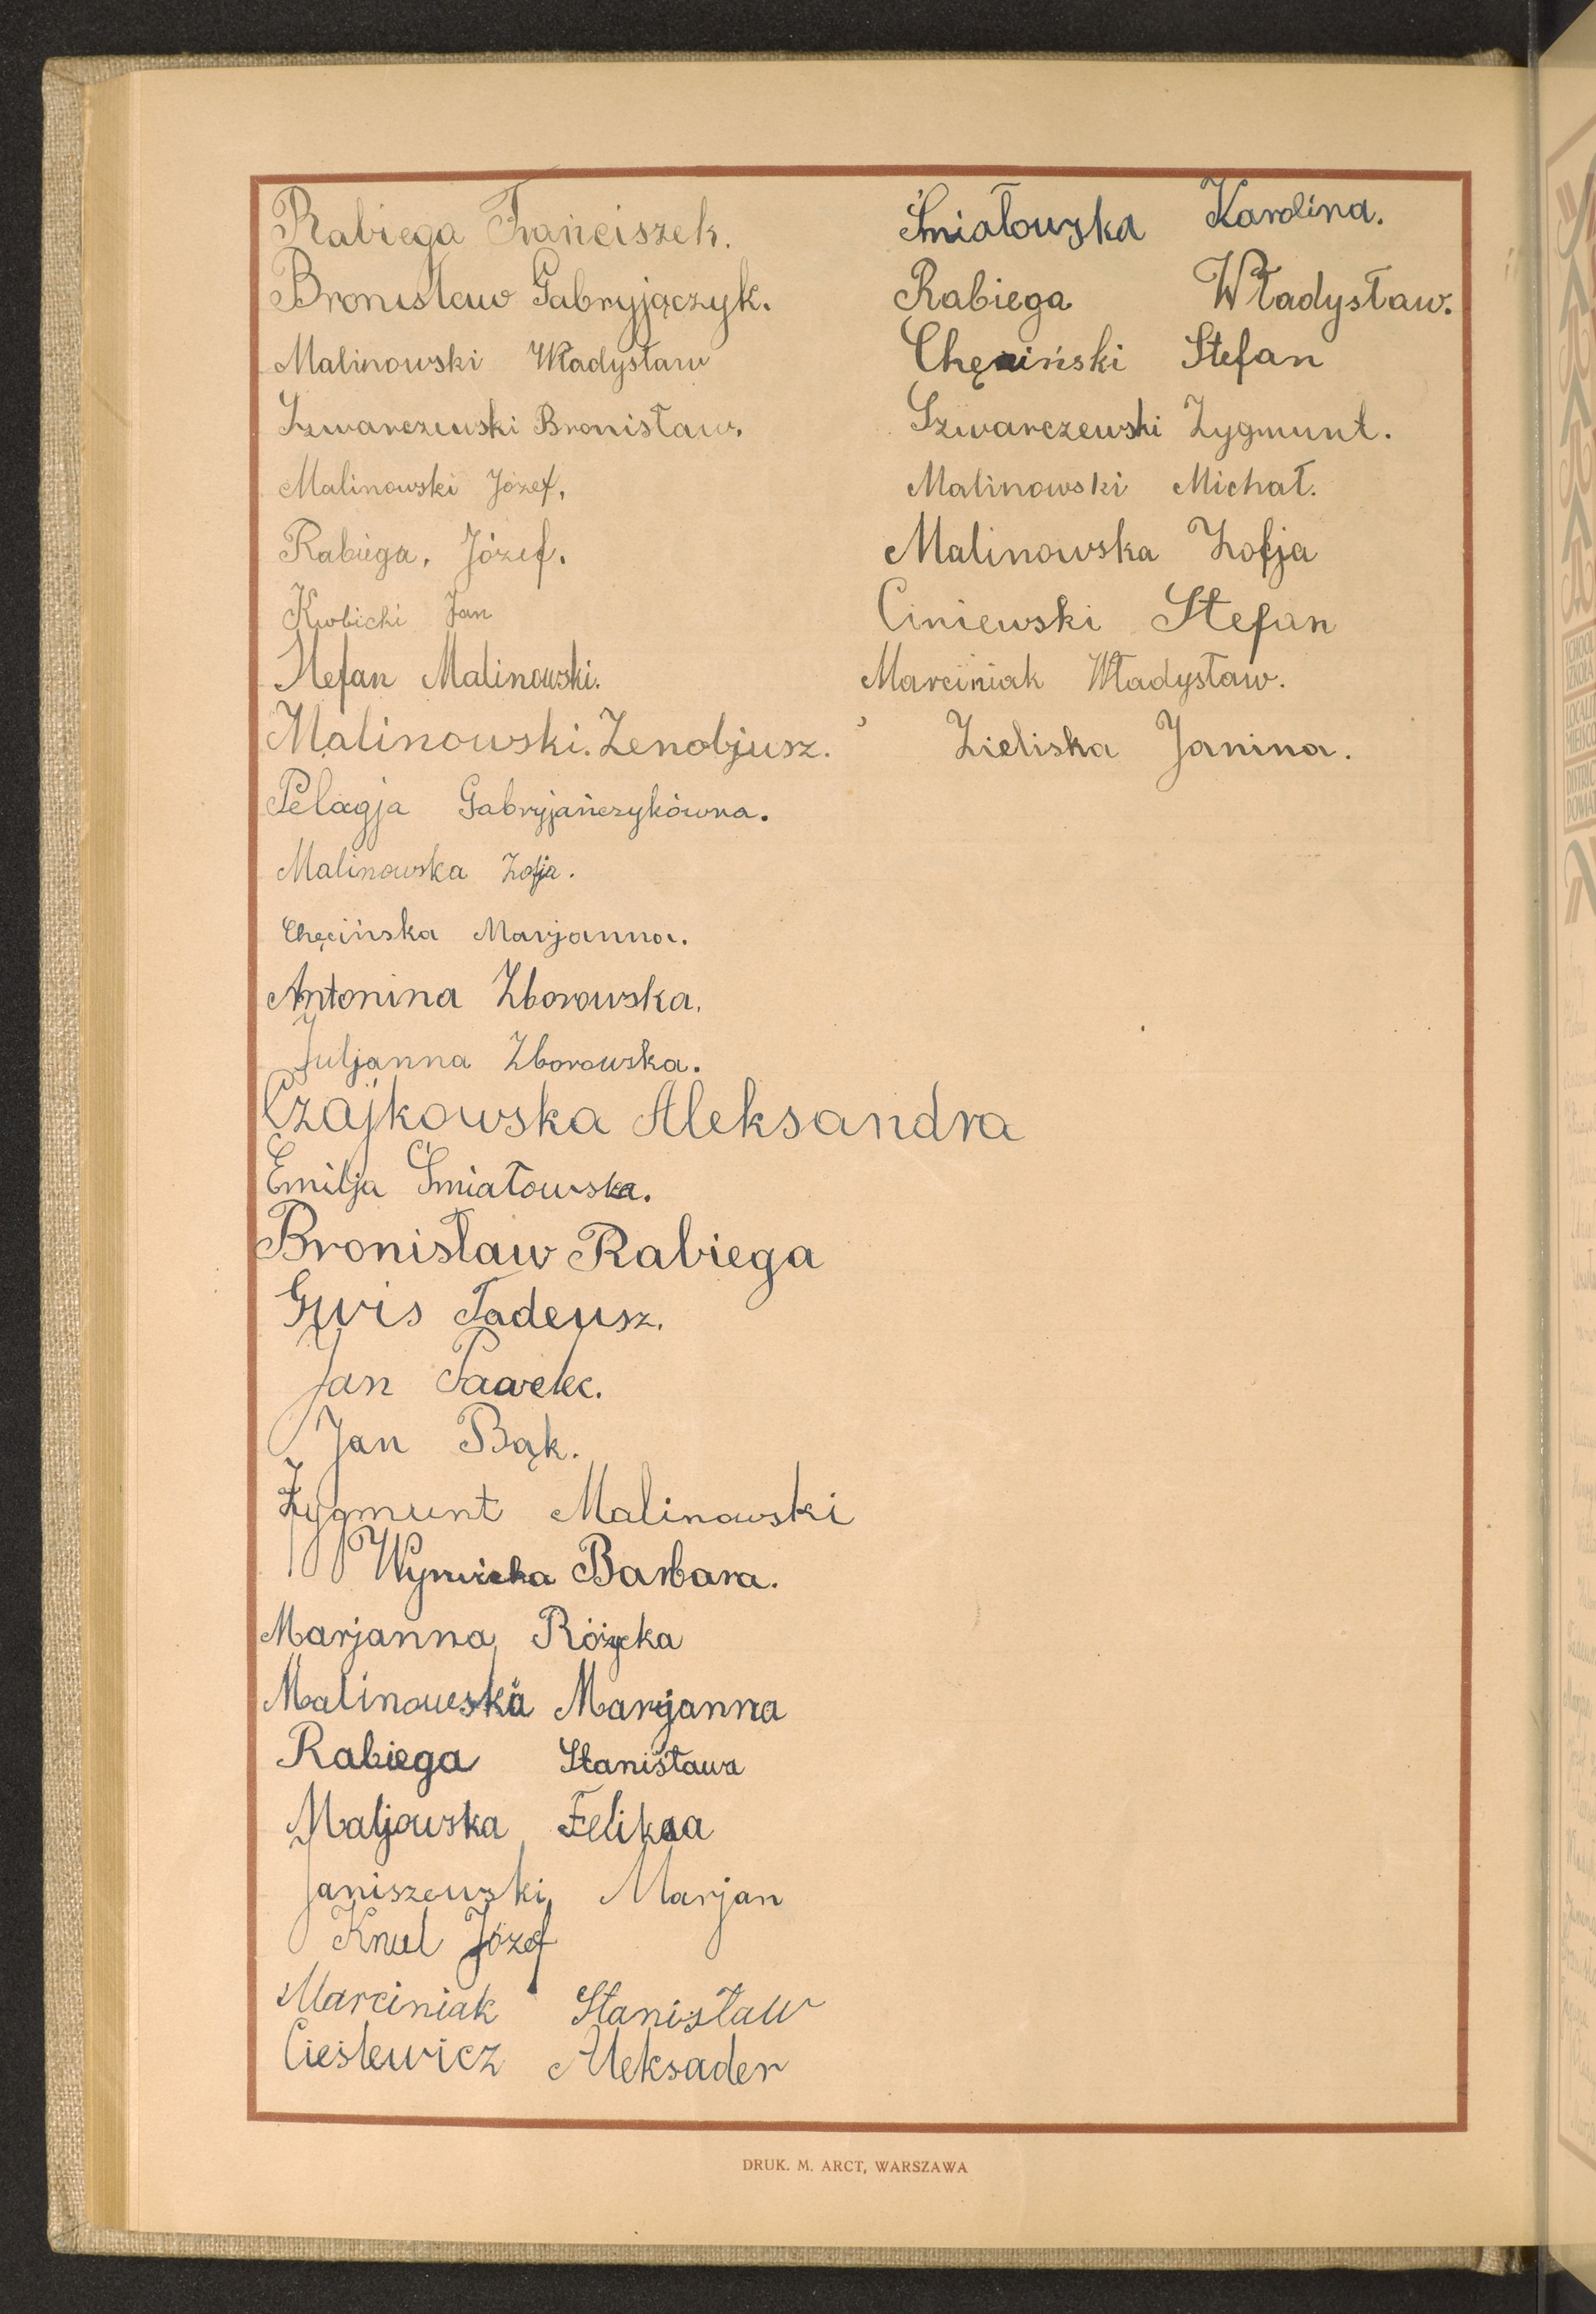 Rabiega Franciszek.
Bronisław Gabryjączyk.
Malinowski Władysław
Szwarczewski Bronisław.
Malinowski Józef.
Rabiega, Józef.
Kubicki Jan
Stefan Malinowski.
Malinowski. Zenobjusz.
Pelagja Gabryjańczykówna.
Malinowska Zofja.
Chęcińska Marjanna.
Antonina Zborowska.
Juljanna Zborowska.
Czajkowska Aleksandra
Emilja Śmiałowska.
Bronisław Rabiega
Gwis Tadeusz.
Jan Pawelec.
Jan Bąk.
Zygmunt Malinowski
Barbara.
Marjanna Różycka
Malinowska Marjanna
Rabiega Stanisława
Maljowska Feliksa
Janiszewski Marjan
Knul Józef
Marciniak Stanisław
Cieślewicz Aleksader
Śmiałowska Karolina.
Rabiega Władysław.
Chęciński Stefan
Szwarczewski Zygmunt.
Malinowski Michał.
Malinowska Zofja
Ciniewski Stefan
Marciniak Władysław.
Zieliska Janina.
DRUK. M. ARCT, WARSZAWA